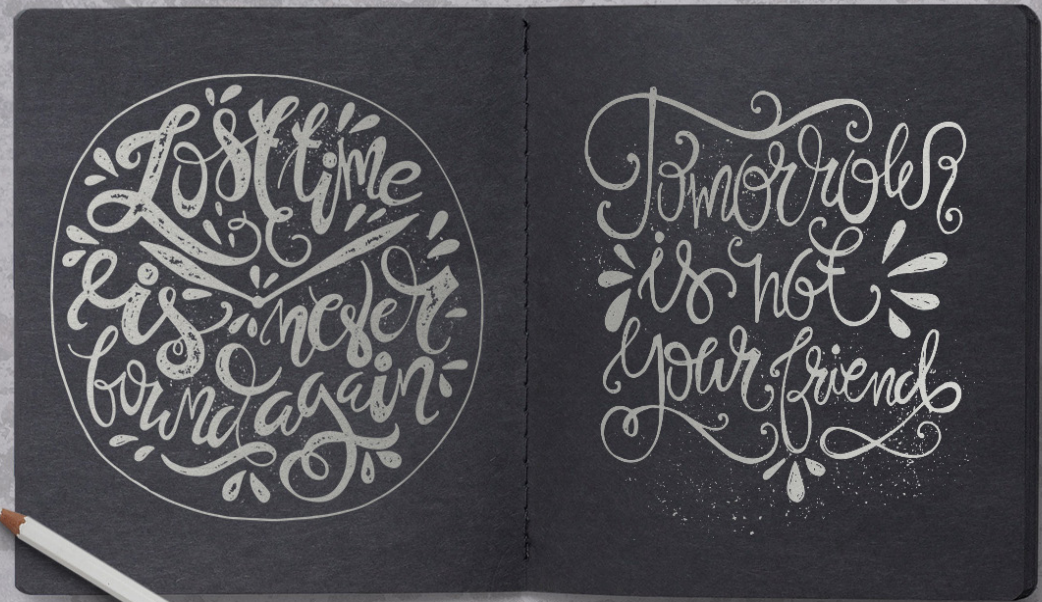 Lost time
is never
found again
Tomorrow
is not
your friend